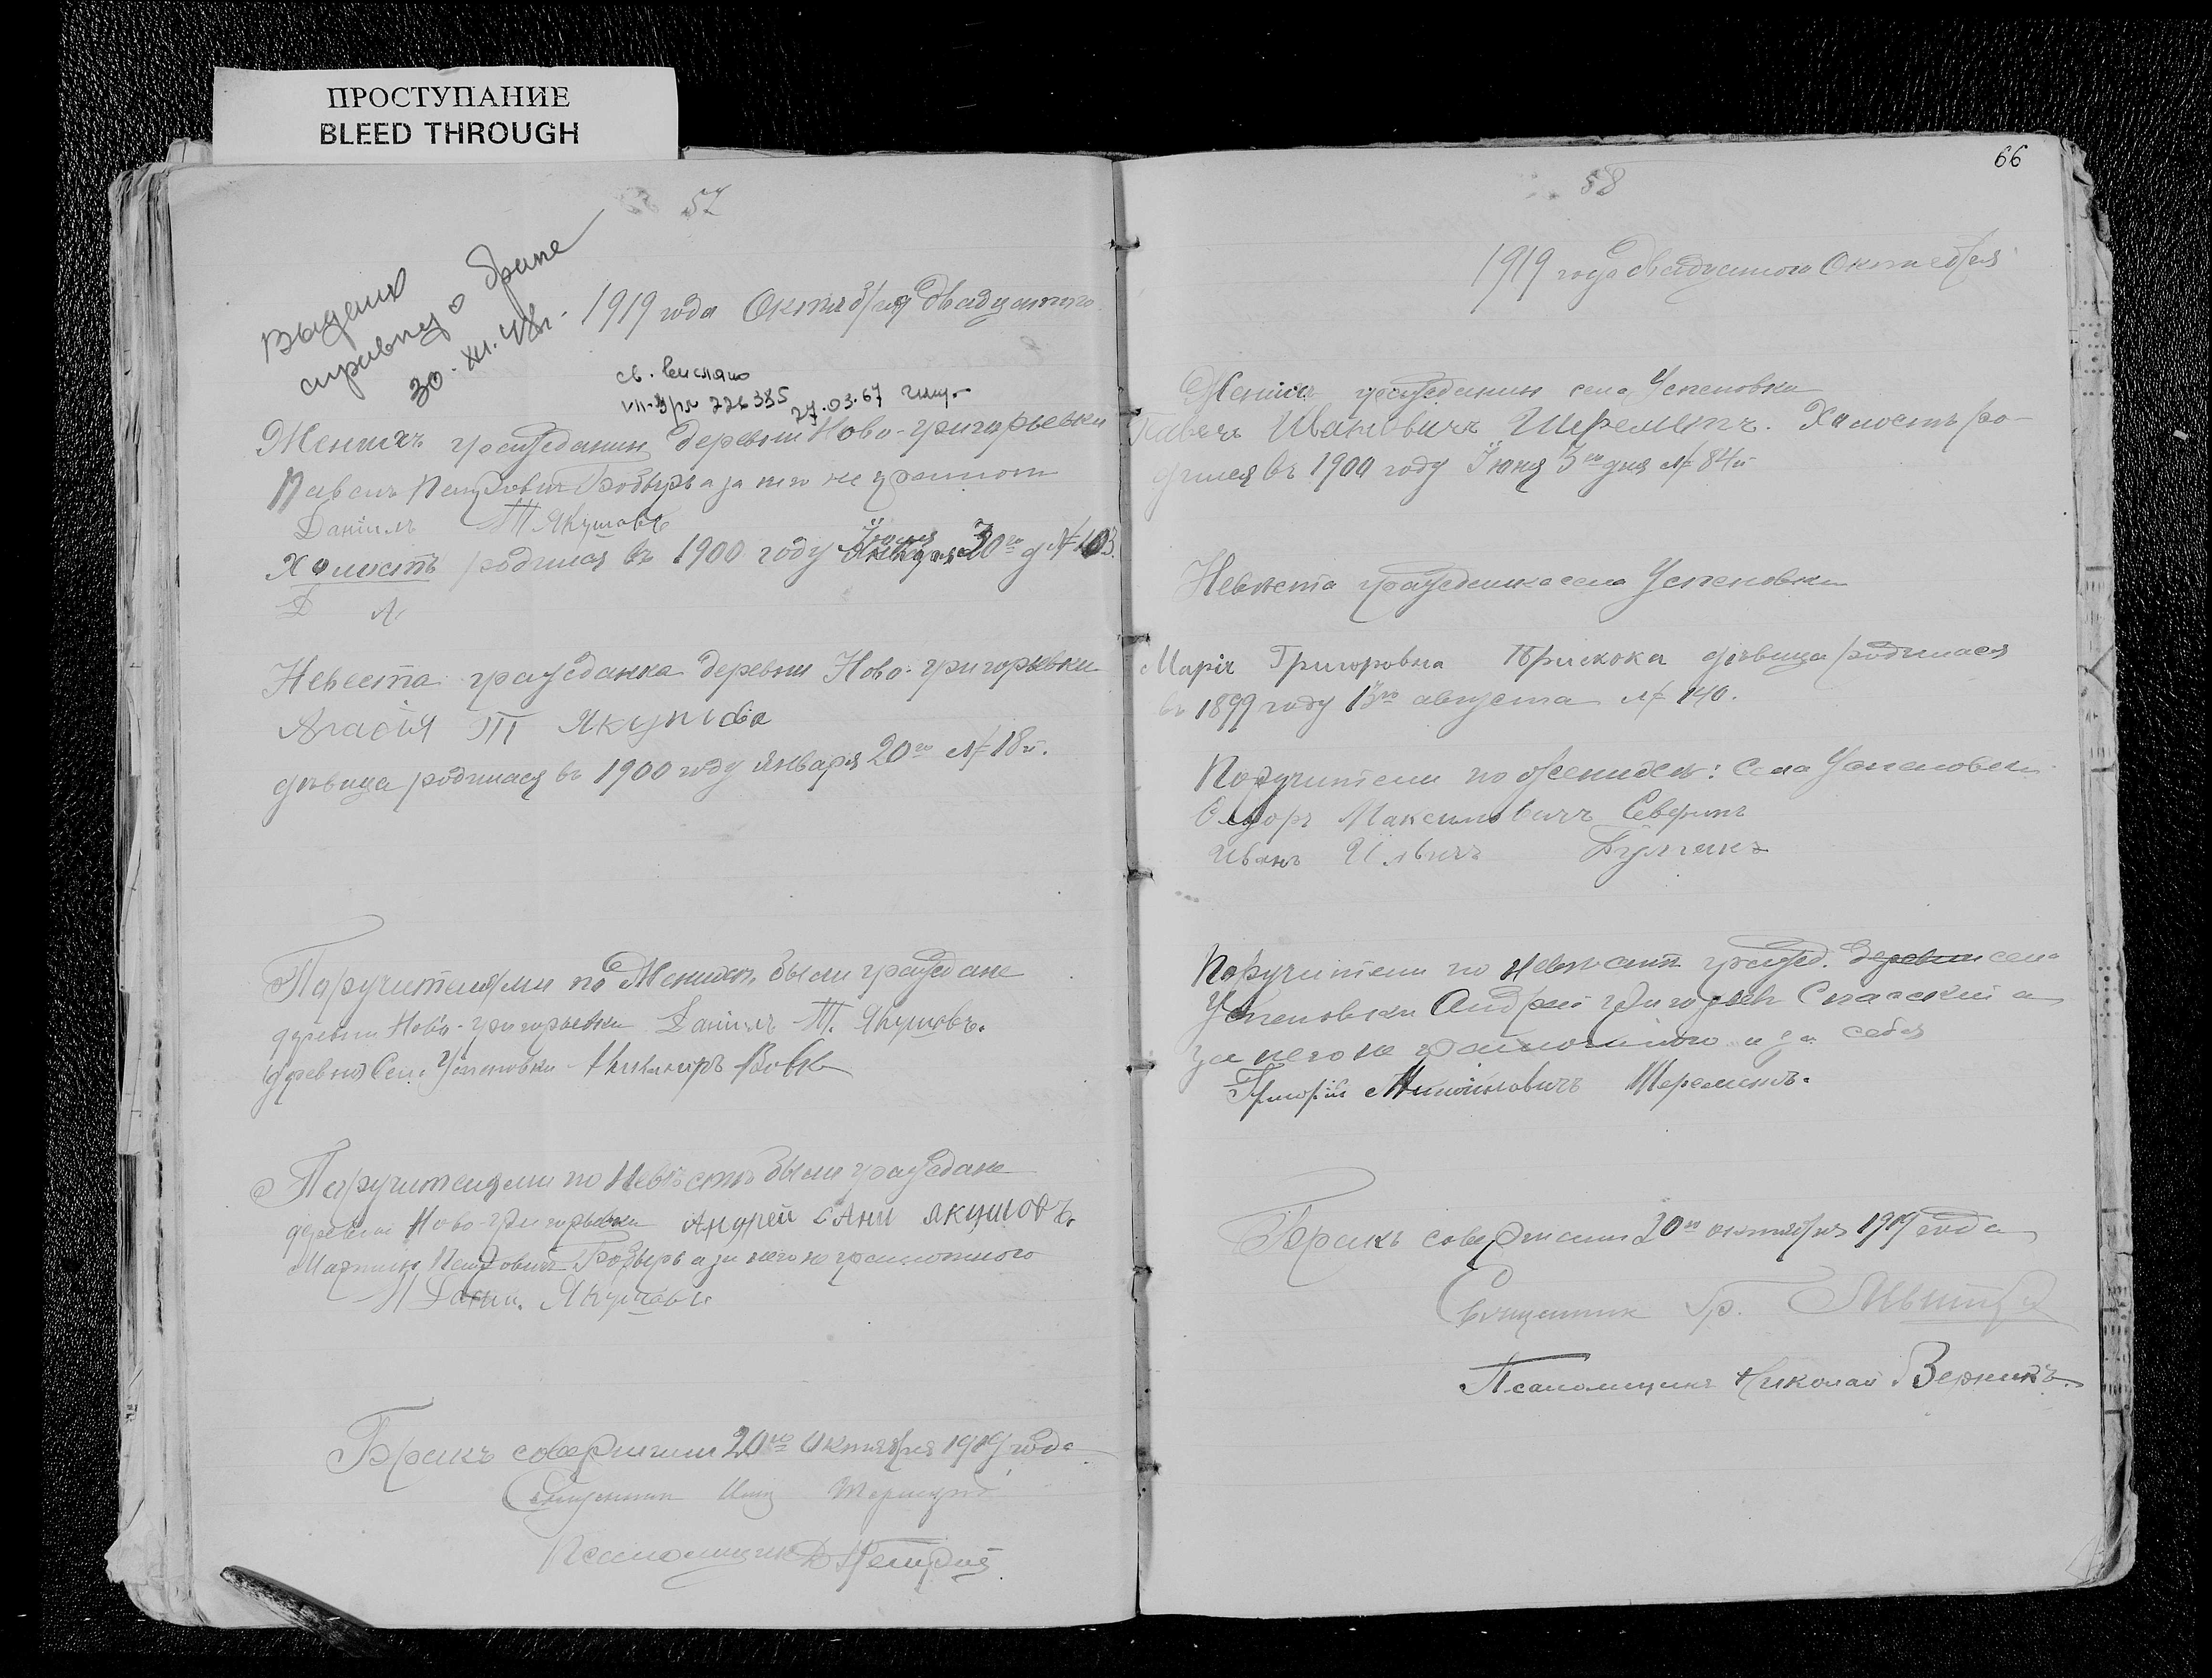 ПРОСТУПАНИЕ
BLEED THROUGH
57
Выдана
справку о браке
30. XII. 48г.
1919 года Октября двадцатого
св. выслано
VII-ЗРЛ 226385 27.03.67
Женихъ гражданин деревни Ново-григорьевки
Павелъ Петровичъ а за него не грамот
Данiилъ Т Якушовъ
Холостъ родился въ 1900 году Iюня 30го д № 103.
Д Я
Невеста гражданка деревни Ново-григорьевки
Агафiя Т Якушова
девица родилася въ 1900 году Января 20го № 18й.
Паручителями по Женихе были граждане
деревни Ново-григорьевки Данiилъ Т. Якушовъ.
Сел. Успеновки Никаноръ Вовк
Паручителями по Невѣстѣ были граждане
деревни Ново-григорьевки Андрей Якушовъ.
Мартин Петровичъ а за него не грамотного
Данил. Якушовъ
Бракъ совершили 20го Октября 1919 года
Священник
Псаломщик
66
58
1919 года двадцатого Октября
Женихъ гражданин села Успеновки
Павелъ Ивановичъ Шереметъ. Холостъ ро-
дился въ 1900 году Iюня 3го дня № 84й
Невѣста гражданка села Успеновки
Марiя Григоровна дѣвица родилася
въ 1899 году 13го августа № 140.
Поручители по Женихѣ: Села Успеновки
Федоръ Максимовичъ Севринъ
Иванъ Ильичъ
Поручители по Невѣсте гражд. деревни села
Успеновки Андрей Григорьев Спасский а
за него не грамотного и за себя
Григорiй Шереметъ.
Бракъ совершили 20го октября 1919 года
Священник Гр.
Псаломщикъ Николай Верникъ.